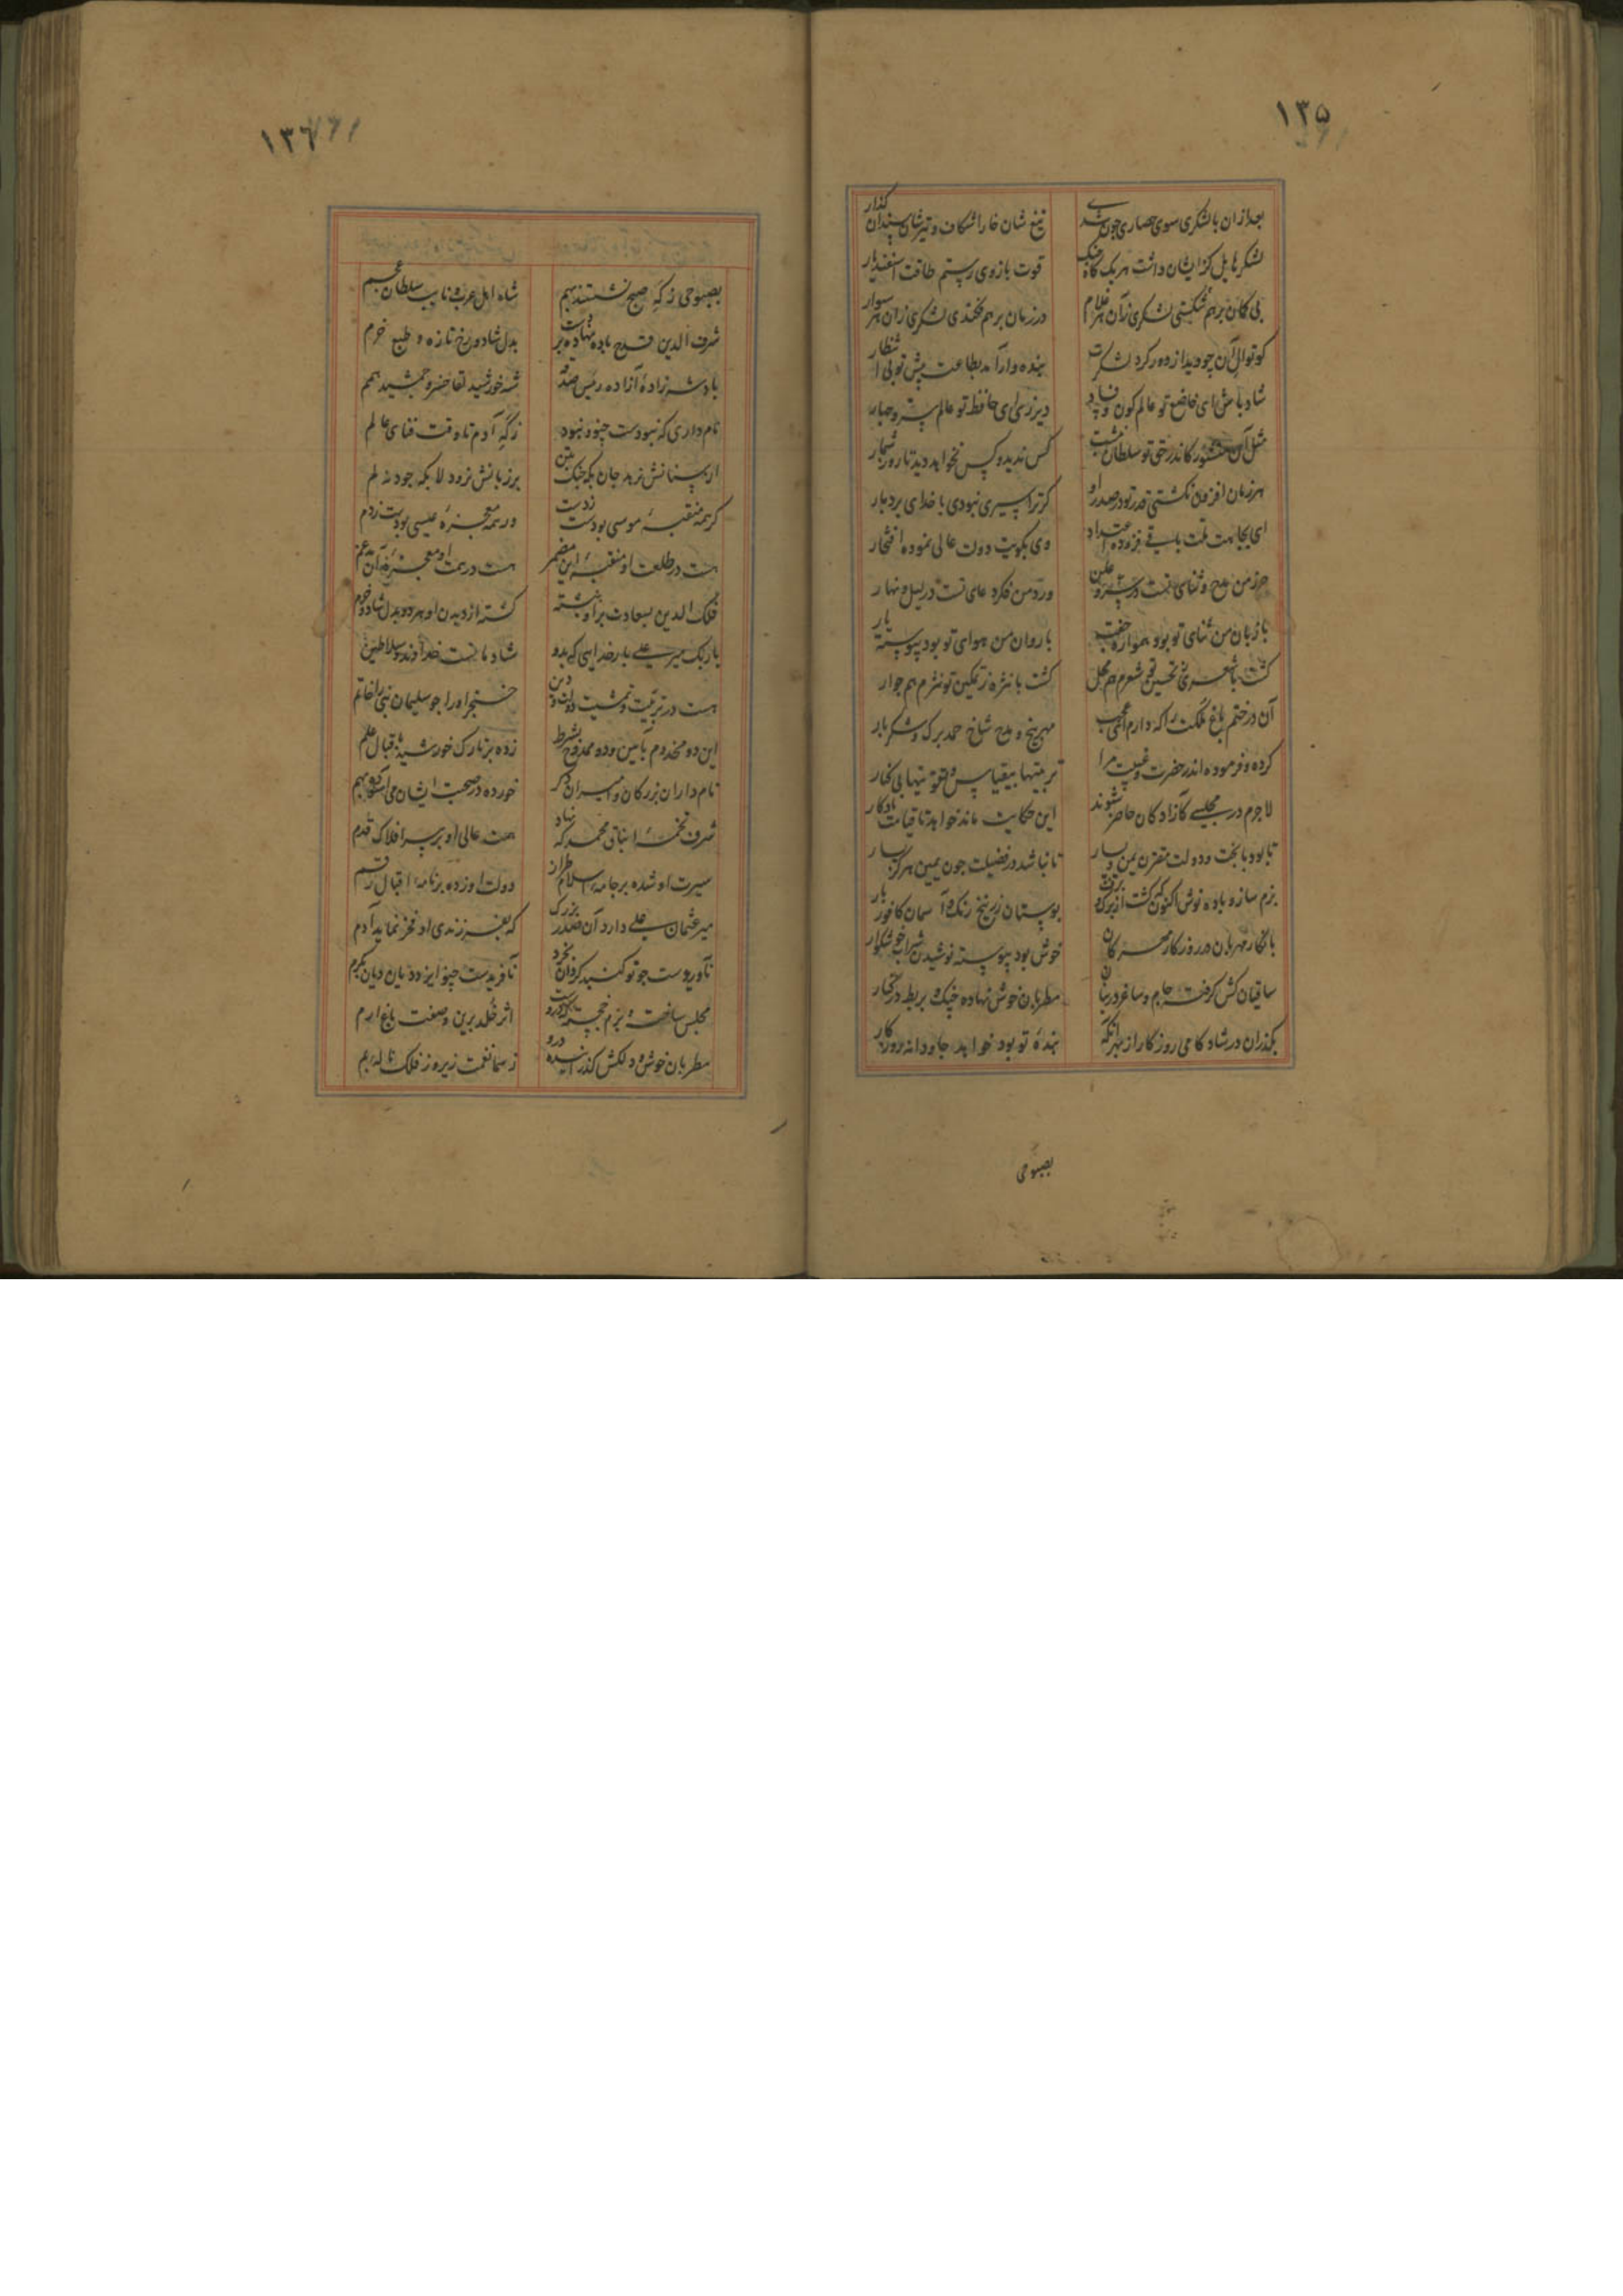 ١٣۵
بعد ازان با لشکری سوی حصاری چون شدی
تیغ شان خارا شکاف و تیرشان سندان گذار
لشکر ایشان داشت هر یک گاه جنگ
قوت بازوی رستم طاقت اسفندیار
بی کمان برهم شکستی لشکری زان هر غلام
در زمان برهم فکندی لشکری زان هر سوار
کوتوال آن چو دید از دور کرد لشکرت
بنده وار آمد بطاعت پیش تو بی انتظار
شاد باش ای خاضع تو عالم کون و فساد
دیر زی ای حافظ تو عالم
مثل آن منشور کاندر حق تو سلطان نبشت
کس ندید و کس نخواهد دید تا روز شمار
هر زمان افزون نکشتی قدر تو در صدر او
گر ترا سیری نبودی با خدای بردبار
ای بجاهت ملت باقی فزوده اعتداد
وی بکویت دولت عالی نموده افتخار
حرز من مدح و ثنای تست در
ورد من فکر دعای تست در لیل و نهار
با زبان من ثنای تو بود همواره جفت
با روان من هوای تو بود پیوسته یار
گشت با شعری ز تحسین تو شعرم هم محل
گشت با نثره ز تمکین تو نثرم هم جوار
آن درختم باغ ملکت را که دارم ای عجب
مهر بیخ و مدح شاخ و حمد برگ و شکر بار
کرده و فرموده اندر حضرت و غیبت مرا
تربیتها بی قیاس و تقویتها بی کنار
لاجرم در مجلسی کازادکان حاضر شوند
این حکایت ماند خواهد تا قیامت یادکار
تا بود با بخت و دولت مقترن یمن و یسار
تا نباشد در فضیلت چون یمین هرگز یسار
بزم ساز و باده نوش اکنون که گشت از برگ و برف
بوستان زرنیخ رنگ و آسمان کافور بار
با نگار مهربان در روزکار مهرکان
خوش بود پیوسته نوشیدن شراب خوشگوار
ساقیان کش گرفته جام و ساغر در بنان
مطربان خوش نهاده چنگ و بربط در کنار
بگذران در شادکامی روزکار از بهر آنکه
بنده تو بود خواهد جاودانه روزکار
بصبوحی
١٣٦
بصبوحی ز گه صبح نشستند بهم
شاه اهل عرب و نایب سلطان عجم
شرف الدین قدح باده نهاده بر دست
بدل شاد و رخ تازه و طبع خرم
پادشه زاده آزاده رئیس
شه خورشید لقا خسرو جمشید همم
نام داری که نبودست چنو و نبود
ز گه آدم تا وقت فنای عالم
از سنانش نرهد جان بگه جنگ بتن
بر زبانش نرود لا بگه جود نه لم
گر همه منقبه موسی بودست ز دست
ور همه معجزه عیسی بودست ز دم
هست در طلعت او منقبه این مضمر
هست در همت او معجزه آن مدغم
فلک الدین بسعادت بر او بنشسته
گشته از دیدن او هر دو بدل شاد و خرم
باربک میر علی بار خدایی که بدو
شادمانست خداوند سلاطین
هست در تربیت و تمشیت دولت و دین
خنجر او را چو سلیمان نبی را خاتم
این دو مخدوم بآیین و دو ممدوح بشرط
زده بر تارک خورشید ز اقبال علم
نام داران بزرکان و امیران دگر
خورده در صحبت ایشان می آسوده بهم
شرف تخمه ایناق محمد که نهاد
همت عالی او بر سر افلاک قدم
سیرت او شده بر جامه اسلام طراز
دولت او زده بر نامه اقبال رقم
میر عثمان علی دارد آن صدر بزرک
که بفرزندی او فخر نماید آدم
ناوریدست چو تو گنبد گردان بخرد
نافریدست چنو ایزد دیان بکرم
مجلس ساخته و بزم
اثر خلد برین و صفت باغ ارم
مطربان خوش و دلکش گذراننده درو
ز سما نغمت زیر و ز فلک ناله بم